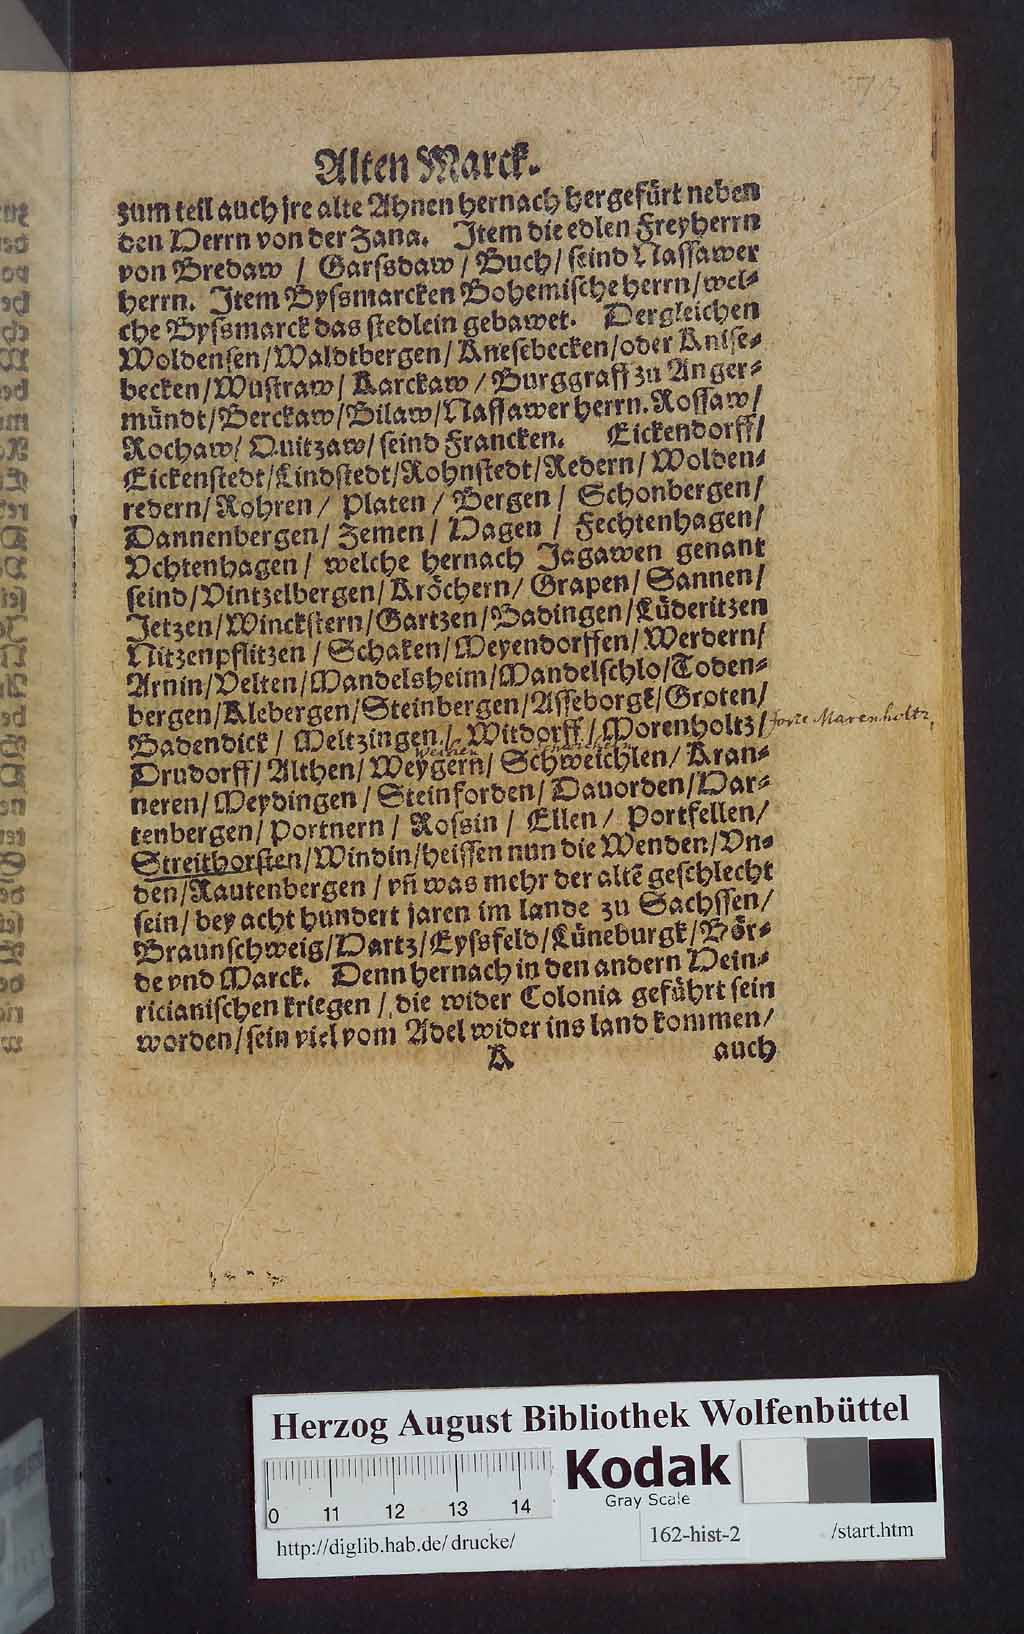 73
Alten Marck.
zum teil auch jre alte Ahnen hernach hergefürt neben
den Herrn von der Zana. Item die edlen Freyherrn
von Bredaw / Garssdaw / Buch / seind Nassawer
herrn. Item Byssmarcken Bohemische herrn / wel-
che Byssmarck das stedlein gebawet. Dergleichen
Woldensen / Waldtbergen / Knesebecken / oder Knise-
becken / Wustraw / Karckaw / Burggraff zu Anger-
mündt / Berckaw / Bilaw / Nassawer herrn. Rossaw /
Rochaw / Quitzaw / seind Francken. Eickendorff /
Eickenstedt / Lindstedt / Rohnstedt / Redern / Wolden-
redern / Rohren / Platen / Bergen / Schonbergen /
Dannenbergen / Zemen / Hagen / Fechtenhagen /
Vchtenhagen / welche hernach Jagawen genant
seind / Vintzelbergen / Kröchern / Grapen / Sannen /
Jetzen / Winckstern / Gartzen / Badingen / Lüderitzen
Nitzenpflitzen / Schaken / Meyendorffen / Werdern /
Arnin / Velten / Mandelsheim / Mandelschlo / Toden-
bergen / Klebergen / Steinbergen / Asseborgk / Groten /
Badendick / Meltzingen / Witdorff / Morenholtz / forte Marenholtz
Drudorff / Althen / Weygern / Schweichlen / Kran-
neren / Meydingen / Steinforden / Dauorden / Har-
tenbergen / Portnern / Rossin / Ellen / Portfellen /
Streithorsten / Windin / heissen nun die Wenden / Vn-
den / Rautenbergen / vñ was mehr der altē geschlecht
sein / bey acht hundert jaren im lande zu Sachssen /
Braunschweig / Hartz / Eyssfeld / Lüneburgk / Bör-
de vnd Marck. Denn hernach in den andern Hein-
ricianischen kriegen / die wider Colonia geführt sein
worden / sein viel vom Adel wider ins land kommen /
K auch
Herzog August Bibliothek Wolfenbüttel
Kodak
Gray Scale
0 11 12 13 14
http://diglib.hab.de/drucke/ 162-hist-2 /start.htm